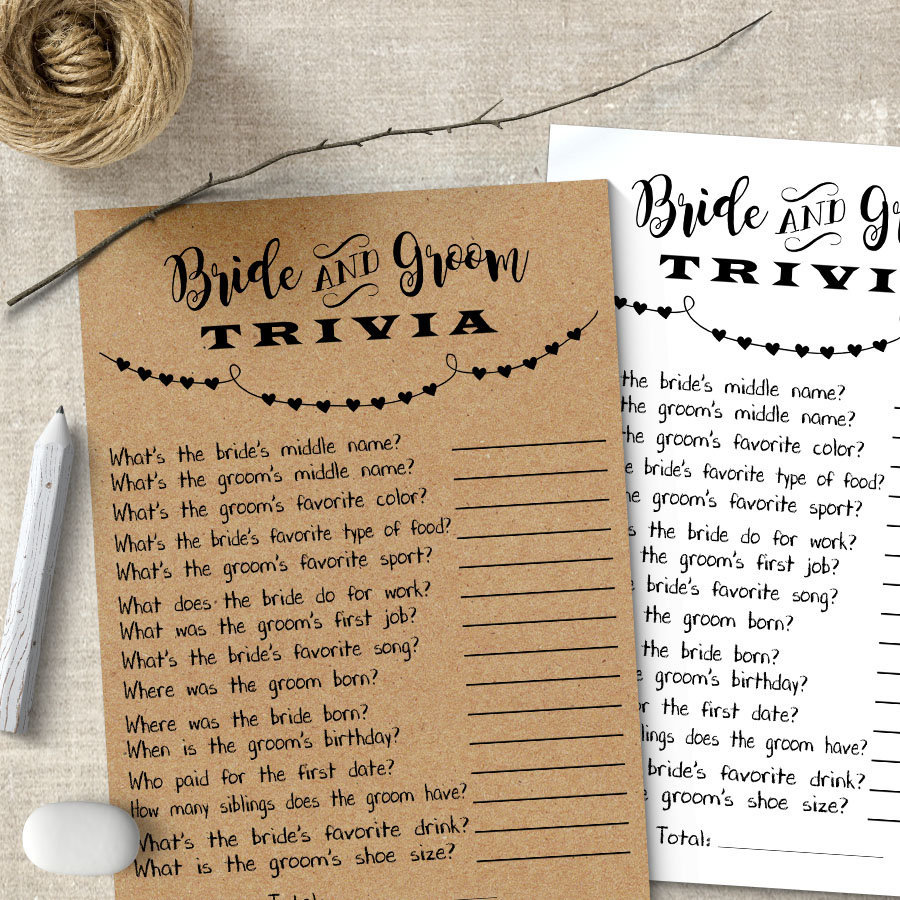 Bride AND Groom
TRIVIA
What's the bride's middle name?
What's the groom's middle name?
What's the groom's favorite color?
What's the bride's favorite type of food?
What's the groom's favorite sport?
What does the bride do for work?
What was the groom's first job?
What's the bride's favorite song?
Where was the groom born?
Where was the bride born?
When is the groom's birthday?
Who paid for the first date?
How many siblings does the groom have?
What's the bride's favorite drink?
What is the groom's shoe size?
Bride AND
TRIVI
the bride's middle name?
the groom's middle name?
the groom's favorite color?
bride's favorite type of food?
groom's favorite sport?
the bride do for work?
the groom's first job?
bride's favorite song?
the groom born?
the bride born?
groom's birthday?
the first date?
lings does the groom have?
bride's favorite drink?
groom's shoe size?
Total: